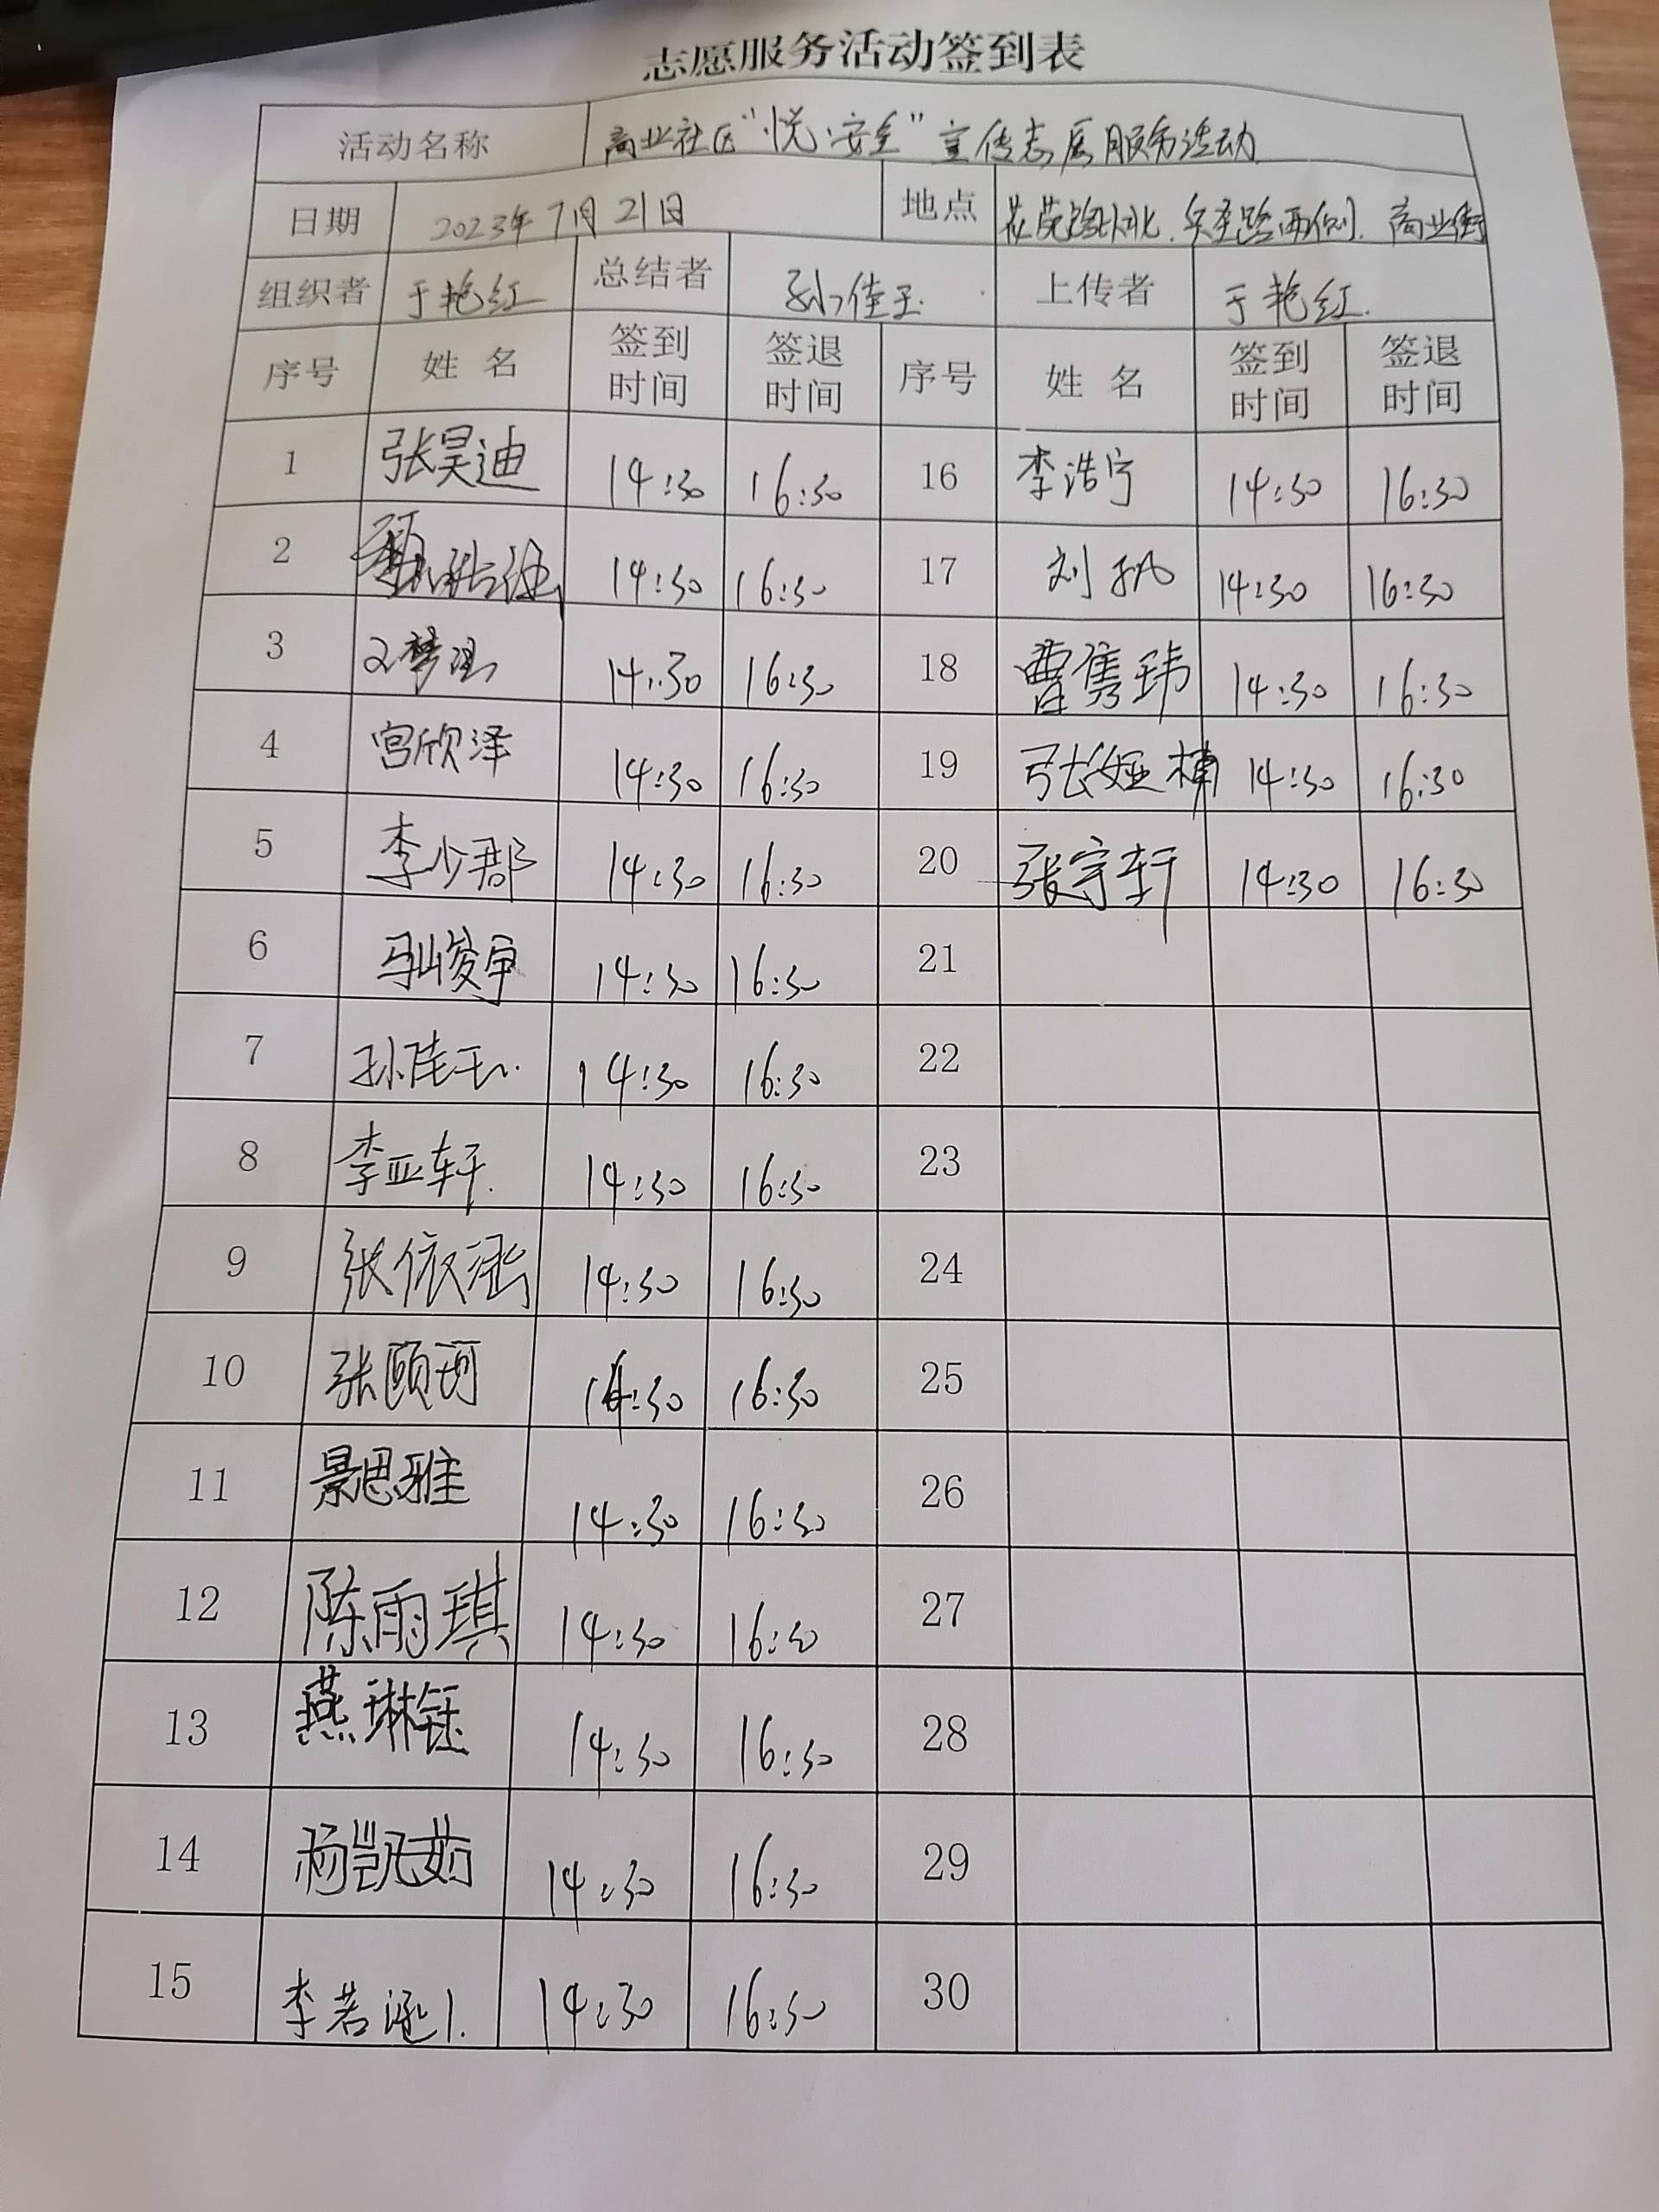 志愿服务活动签到表
活动名称 商业社区“悦·安全”宣传志愿服务活动
日期 2023年7月21日 地点 花苑路以北、 路西侧、商业街
组织者 于艳红 总结者 孙佳玉 上传者 于艳红
序号 姓名 签到时间 签退时间 序号 姓名 签到时间 签退时间
1 张昊迪 14:30 16:30 16 李浩宁 14:30 16:30
2 14:30 16:30 17 刘 14:30 16:30
3 14:30 16:30 18 曹隽玮 14:30 16:30
4 宫欣泽 14:30 16:30 19 张娅楠 14:30 16:30
5 李少郡 14:30 16:30 20 张宇轩 14:30 16:30
6 14:30 16:30 21
7 孙佳玉 14:30 16:30 22
8 李亚轩 14:30 16:30 23
9 张依涵 14:30 16:30 24
10 张颐珂 14:30 16:30 25
11 景思雅 14:30 16:30 26
12 陈雨琪 14:30 16:30 27
13 燕琳钰 14:30 16:30 28
14 杨凯茹 14:30 16:30 29
15 李若涵 14:30 16:30 30